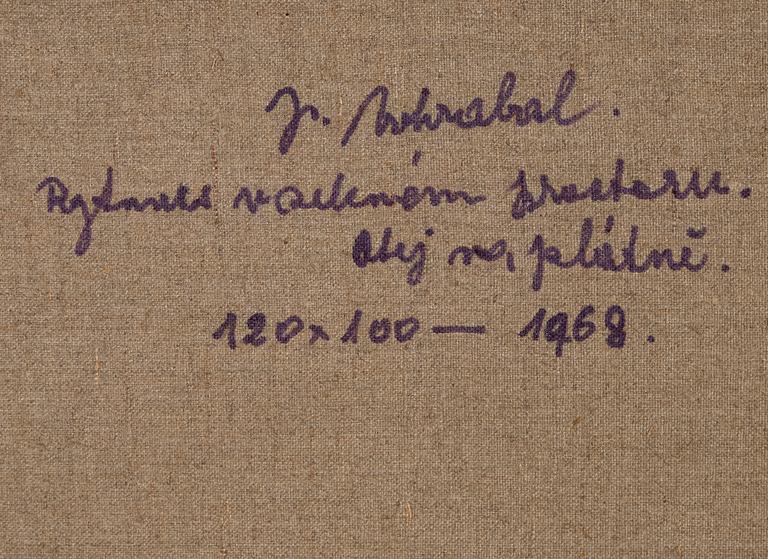 J. Dokrabal.
Rytmus v prostoru.
Olej na plátně.
120x100 — 1968.